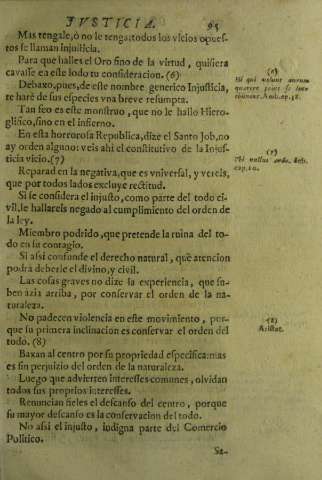 JVSTICIA. 95
Mas tengale, ò no le tenga: todos los vicios opues-
tos se llaman injusticia.
Para que halles el Oro fino de la virtud, quisiera
cavasse en este lodo tu consideracion. (6)
Debaxo, pues, de este nombre generico Injusticia,
te harè de sus especies vna breve resumpta.
Tan feo es este monstruo, que no le hallo Hiero-
glifico, sino en el infierno.
En esta horrorosa Republica, dize el Santo Job, no
ay orden alguno: veis ahi el constitutivo de la Injus-
ticia vicio. (7)
Reparad en la negativa, que es vniversal, y vereis,
que por todos lados excluye rectitud.
Si se considera el injusto, como parte del todo ci-
vil, le hallareis negado al cumplimiento del orden de
la ley.
Miembro podrido, que pretende la ruina del to-
do en su contagio.
Si assi confunde el derecho natural, què atencion
podrá deberle el divino, y civil.
Las cosas graves no dize la experiencia, que su-
ben azia arriba, por conservar el orden de la na-
turaleza.
No padecen violencia en este movimiento, por-
que su primera inclinacion es conservar el orden del
todo. (8)
Baxan al centro por su propriedad especifica: mas
es sin perjuizio del orden de la naturaleza.
Luego que advierten interesses comunes, olvidan
todos sus proprios interesses.
Renuncian fieles el descanso del centro, porque
su mayor descanso es la conservacion del todo.
No assi el injusto, indigna parte del Comercio
Politico.
Sa-
(6)
Hi qui volunt aurum
quærere prius se luto
Amb. ep. 18.
(7)
Vbi nullus ordo. Iob.
cap. 10.
(8)
Aristot.